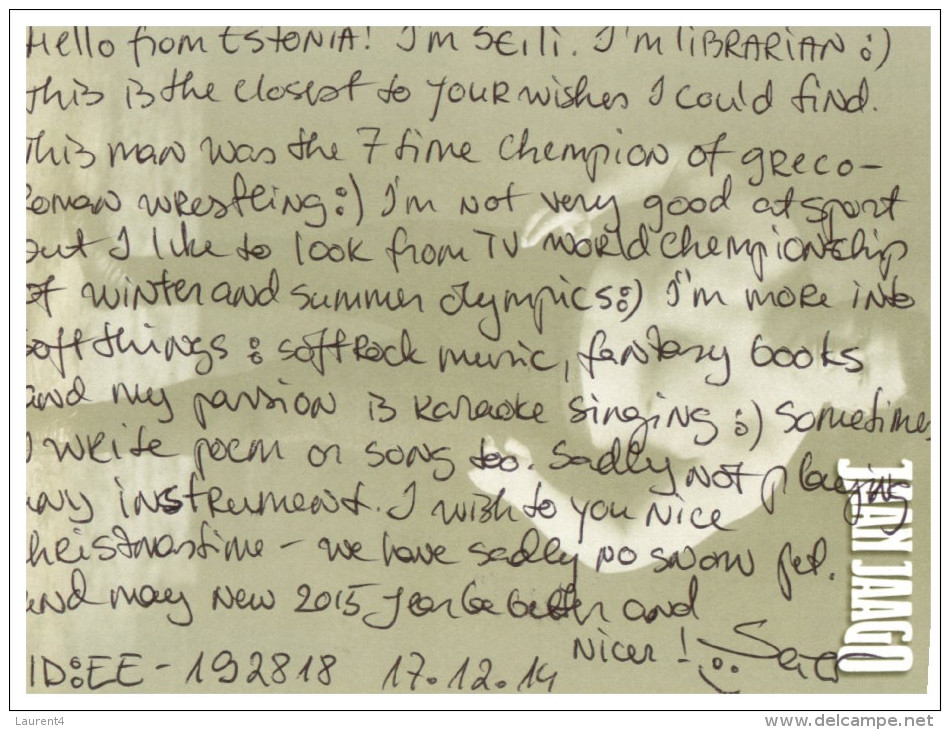 Hello from ESTONIA! I'm SEILI. I'm LIBRARIAN :)
This is the closest to your wishes I could find.
This man was the 7 time chempion of greco-
roman wrestling :) I'm not very good at sport
but I like to look from TV world chempionship
of winter and summer olympics :) I'm more into
soft things : soft rock music, fantasy books
and my passion is karaoke singing :) Sometimes
I write poem or song too. Sadly not playing
any instrument. I wish to you nice
christmastime - we have sadly no snow yet.
and may new 2015 year be better and
nicer! :)
ID:EE - 192818 17.12.14
JAAN JAAGO
Laurent4
www.delcampe.net